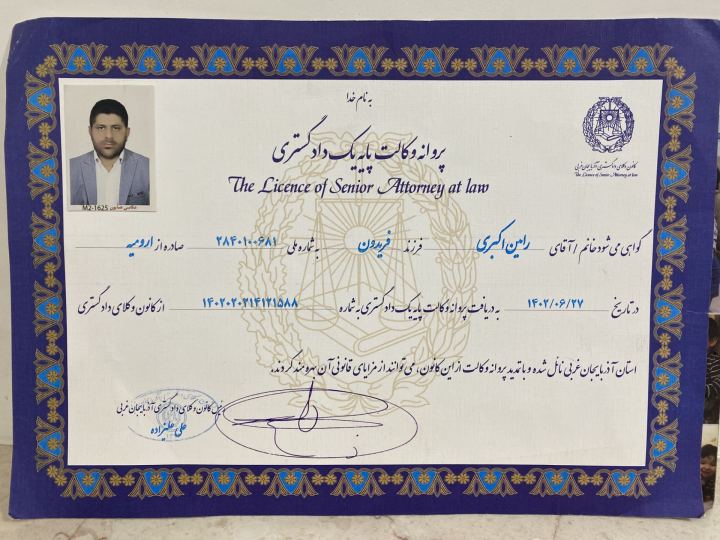 به نام خدا
پروانه وکالت پایه یک دادگستری
The Licence of Senior Attorney at law
کانون وکلای دادگستری آذربایجان غربی
The Licence of Senior Attorney at law
M2-1625
گواهی می شود خانم / آقای رامین اکبری فرزند فریدون به شماره ملی ۲۸۴۰۱۰۰۶۸۱ صادره از ارومیه
در تاریخ ۱۴۰۲/۰۶/۲۷ به دریافت پروانه وکالت پایه یک دادگستری به شماره ۱۴۰۲۰۲۰۲۱۴۱۲۱۵۸۸ از کانون وکلای دادگستری
استان آذربایجان غربی نائل شده و با تمدید پروانه وکالت از این کانون، می توانند از مزایای قانونی آن بهره مند گردند.
رئیس کانون وکلای دادگستری آذربایجان غربی
علی علیزاده